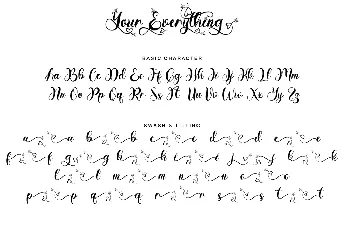 Your Everything
BASIC CHARACTER
Aa Bb Cc Dd Ee Ff Gg Hh Ii Jj Kk Ll Mm
Nn Oo Pp Qq Rr Ss Tt Uu Vv Ww Xx Yy Zz
a a b b c c d d e e
f f g g h h i i j j k k
l l m m n n o o
p p q q r r s s t t